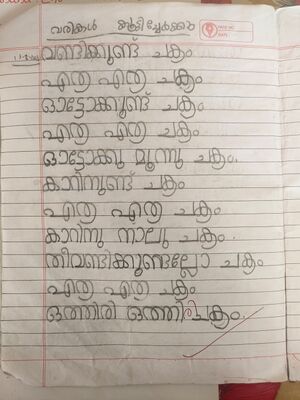 വരികൾ കൂട്ടിച്ചേർക്കാം
വണ്ടിക്കുണ്ട് ചക്രം
എത്ര എത്ര ചക്രം
ഓട്ടോക്കുണ്ട് ചക്രം
എത്ര എത്ര ചക്രം
ഓട്ടോക്കു മൂന്നു ചക്രം.
കാറിനുണ്ട് ചക്രം
എത്ര എത്ര ചക്രം
കാറിനു നാലു ചക്രം.
തീവണ്ടിക്കുണ്ടല്ലോ ചക്രം
എത്ര എത്ര ചക്രം
ഒത്തിരി ഒത്തിരി ചക്രം.